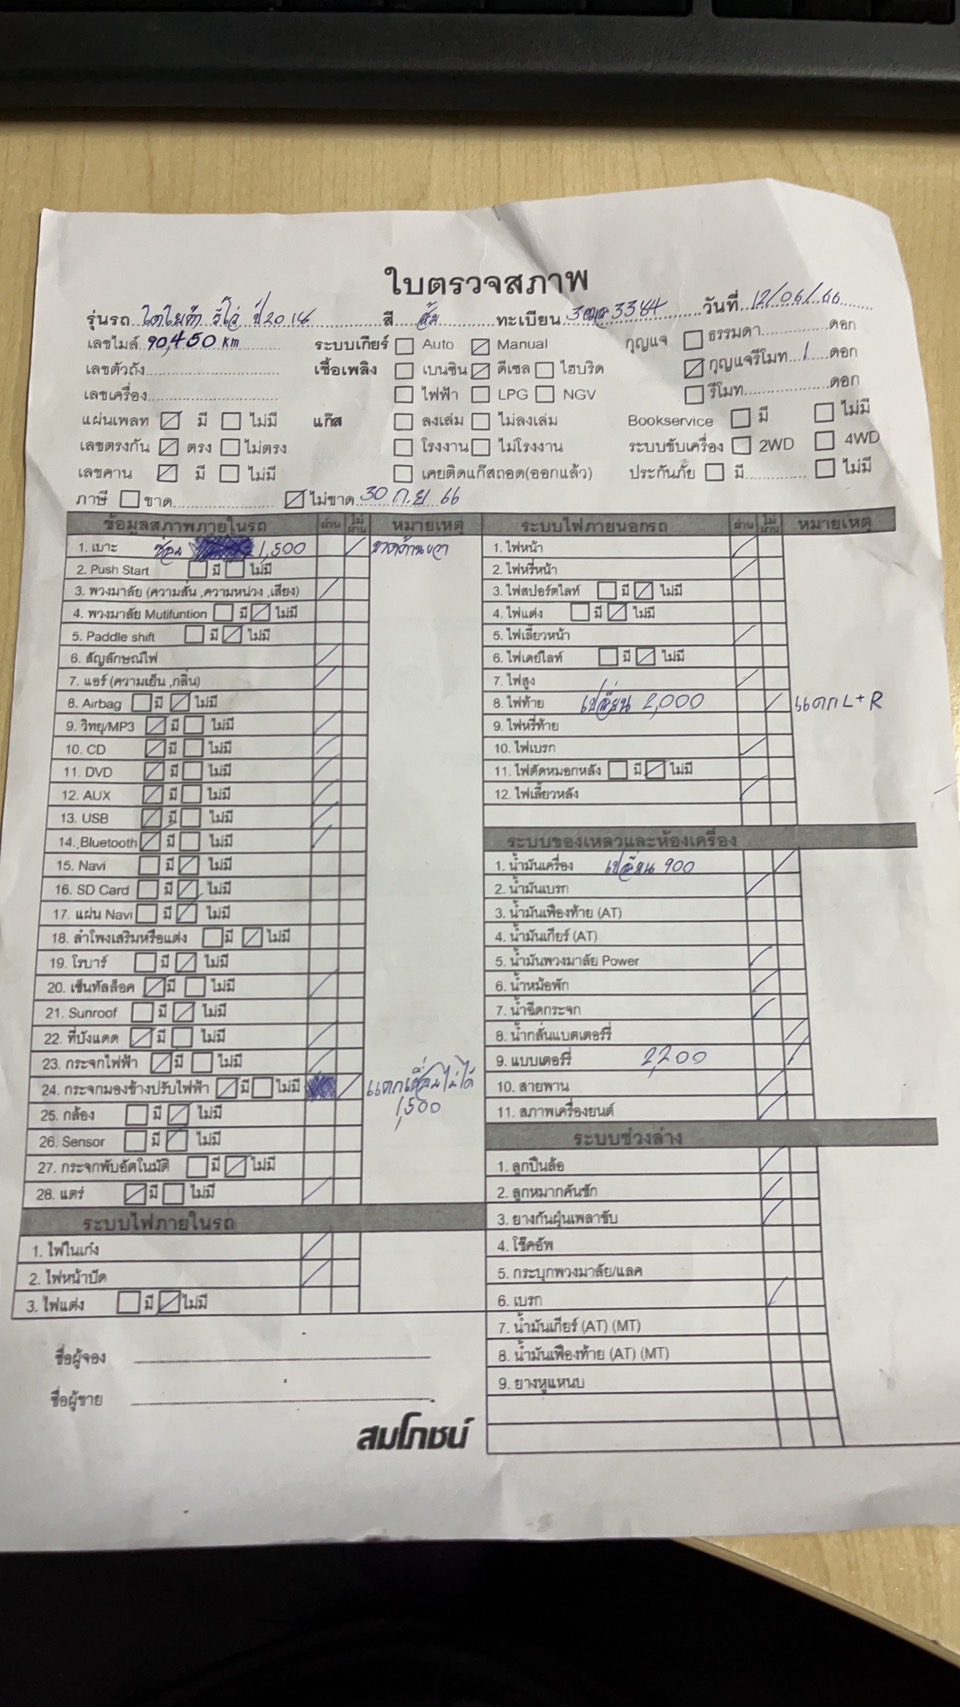 ใบตรวจสภาพ
รุ่นรถ โตโยต้า รีโว่ ปี 2014 สี ส้ม ทะเบียน 3384 วันที่ 12/06/66
เลขไมล์ 90,450 km ระบบเกียร์ Auto Manual กุญแจ ธรรมดา ดอก
เลขตัวถัง เชื้อเพลิง เบนซิน ดีเซล ไฮบริด กุญแจรีโมท 1 ดอก
เลขเครื่อง ไฟฟ้า LPG NGV รีโมท ดอก
แผ่นเพลท มี ไม่มี แก๊ส ลงเล่ม ไม่ลงเล่ม Bookservice มี ไม่มี
เลขตรงกัน ตรง ไม่ตรง โรงงาน ไม่โรงงาน ระบบขับเครื่อง 2WD 4WD
เลขคาน มี ไม่มี เคยติดแก๊สถอด(ออกแล้ว) ประกันภัย มี ไม่มี
ภาษี ขาด ไม่ขาด 30 ก.ย 66
ข้อมูลสภาพภายในรถ ผ่าน ไม่ผ่าน หมายเหตุ
1. เบาะ ซ่อม 1,500 ขาดด้านขวา
2. Push Start มี ไม่มี
3. พวงมาลัย (ความสั่น ,ความหน่วง ,เสียง)
4. พวงมาลัย Mutifuntion มี ไม่มี
5. Paddle shift มี ไม่มี
6. สัญลักษณ์ไฟ
7. แอร์ (ความเย็น ,กลิ่น)
8. Airbag มี ไม่มี
9. วิทยุ/MP3 มี ไม่มี
10. CD มี ไม่มี
11. DVD มี ไม่มี
12. AUX มี ไม่มี
13. USB มี ไม่มี
14. Bluetooth มี ไม่มี
15. Navi มี ไม่มี
16. SD Card มี ไม่มี
17. แผ่น Navi มี ไม่มี
18. ลำโพงเสริมหรือแต่ง มี ไม่มี
19. โรบาร์ มี ไม่มี
20. เซ็นทัลล็อค มี ไม่มี
21. Sunroof มี ไม่มี
22. ที่บังแดด มี ไม่มี
23. กระจกไฟฟ้า มี ไม่มี
24. กระจกมองข้างปรับไฟฟ้า มี ไม่มี แตกเชื่อมไม่ได้
1,500
25. กล้อง มี ไม่มี
26. Sensor มี ไม่มี
27. กระจกพับอัตโนมัติ มี ไม่มี
28. แตร่ มี ไม่มี
ระบบไฟภายในรถ
1. ไฟในเก๋ง
2. ไฟหน้าปัด
3. ไฟแต่ง มี ไม่มี
ชื่อผู้จอง
ชื่อผู้ขาย
สมโภชน์
ระบบไฟภายนอกรถ ผ่าน ไม่ผ่าน หมายเหตุ
1. ไฟหน้า
2. ไฟหรี่หน้า
3. ไฟสปอร์ตไลท์ มี ไม่มี
4. ไฟแต่ง มี ไม่มี
5. ไฟเลี้ยวหน้า
6. ไฟเดย์ไลท์ มี ไม่มี
7. ไฟสูง
8. ไฟท้าย เปลี่ยน 2,000 แตก L+R
9. ไฟหรี่ท้าย
10. ไฟเบรก
11. ไฟตัดหมอกหลัง มี ไม่มี
12. ไฟเลี้ยวหลัง
ระบบของเหลวและห้องเครื่อง
1. น้ำมันเครื่อง เปลี่ยน 900
2. น้ำมันเบรก
3. น้ำมันเฟืองท้าย (AT)
4. น้ำมันเกียร์ (AT)
5. น้ำมันพวงมาลัย Power
6. น้ำหม้อพัก
7. น้ำฉีดกระจก
8. น้ำกลั่นแบตเตอร์รี่
9. แบบเตอร์รี่ 2,200
10. สายพาน
11. สภาพเครื่องยนต์
ระบบช่วงล่าง
1. ลูกปืนล้อ
2. ลูกหมากคันชัก
3. ยางกันฝุ่นเพลาขับ
4. โช๊คอัพ
5. กระบุกพวงมาลัย/แลค
6. เบรก
7. น้ำมันเกียร์ (AT) (MT)
8. น้ำมันเฟืองท้าย (AT) (MT)
9. ยางหูแหนบ